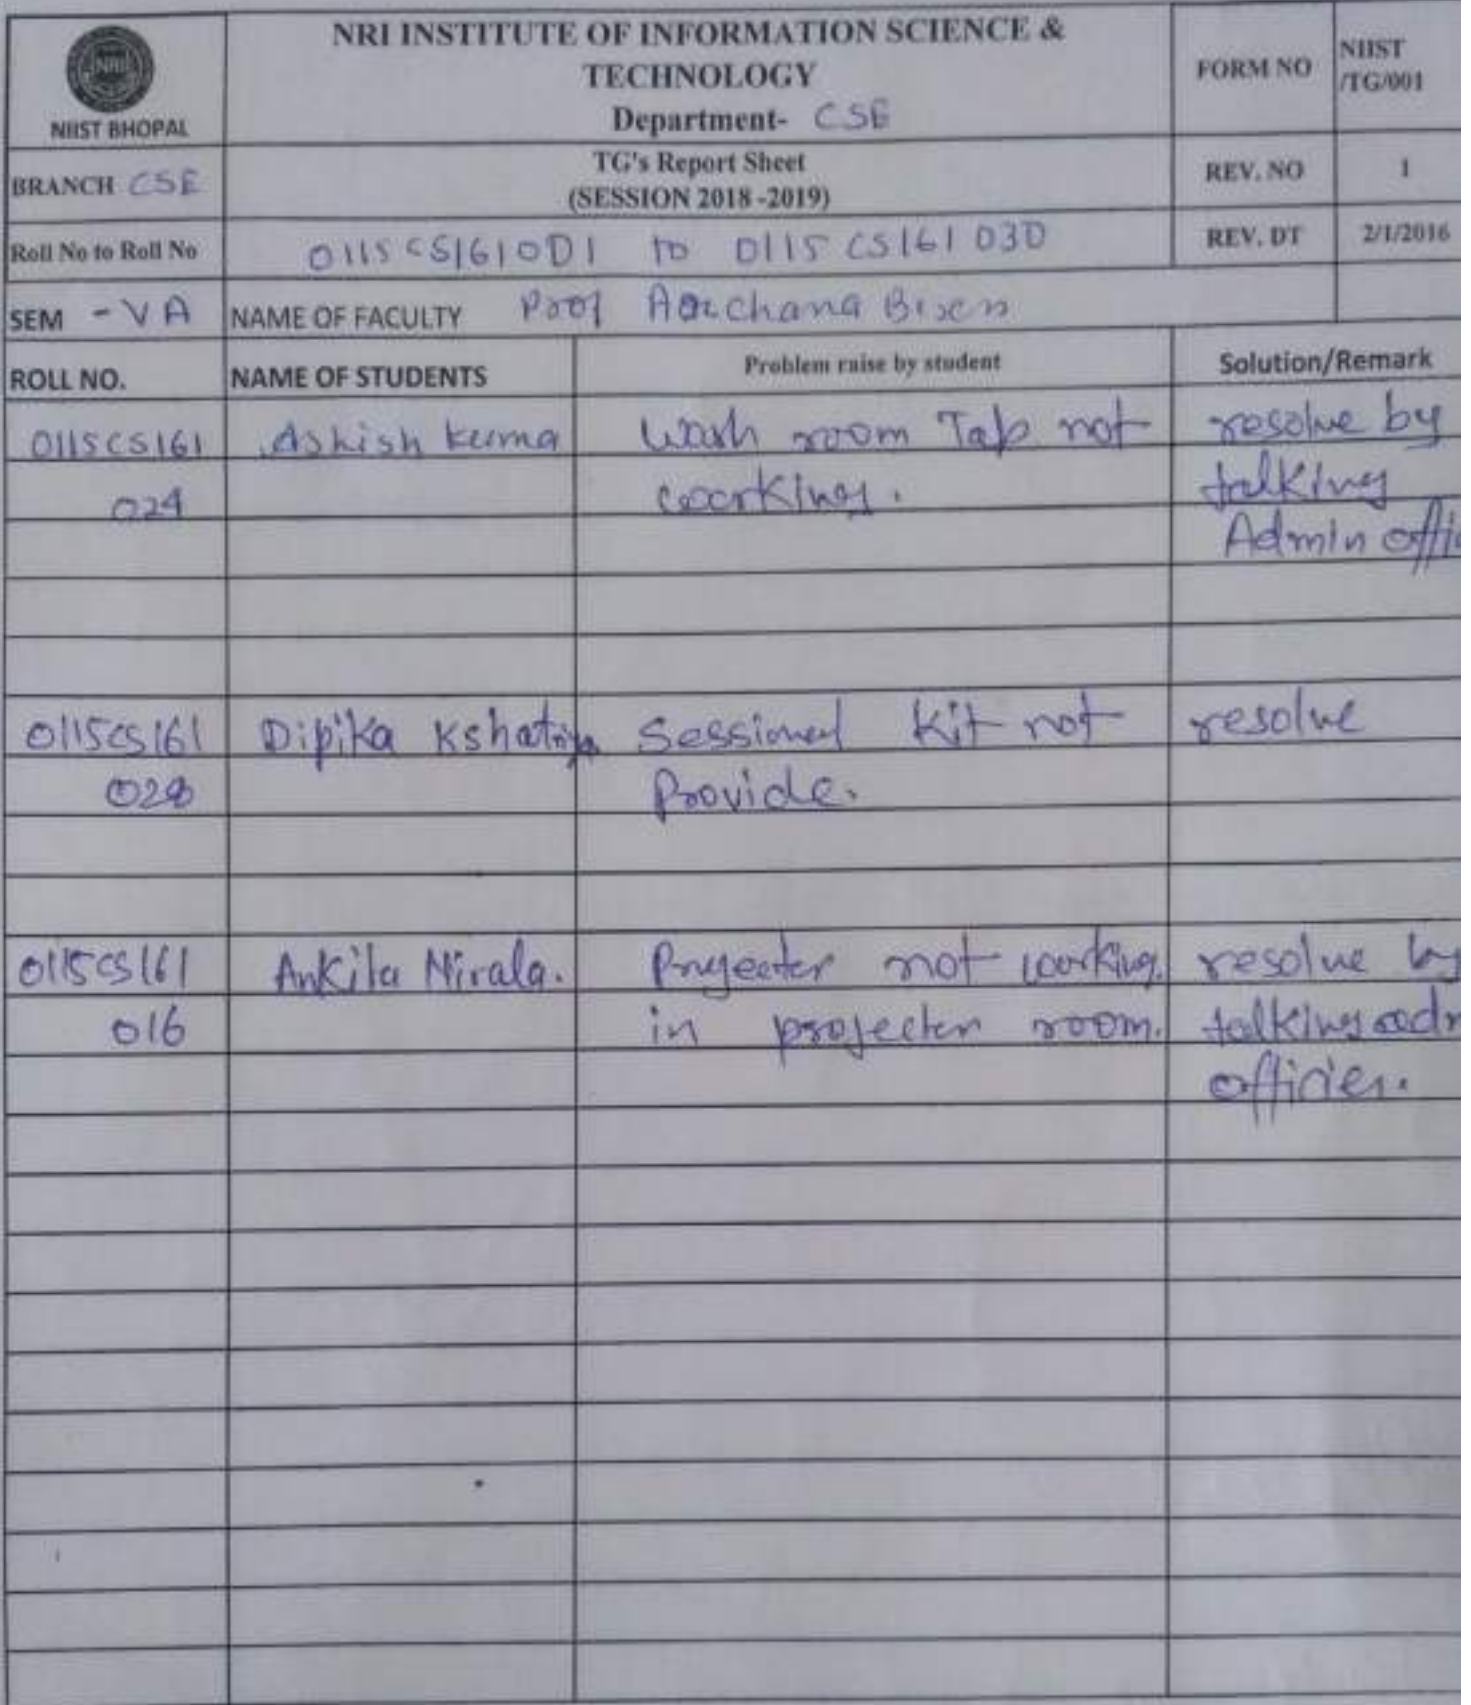 NRI INSTITUTE OF INFORMATION SCIENCE &
TECHNOLOGY
Department- CSE
NRI
NIIST BHOPAL
FORM NO
NIIST
/TG/001
BRANCH CSE
TG's Report Sheet
(SESSION 2018 -2019)
REV. NO
1
Roll No to Roll No
0115CS161001 to 0115CS161030
REV. DT
2/1/2016
SEM - VA
NAME OF FACULTY Prof Archana Bisen
ROLL NO.
NAME OF STUDENTS
Problem raise by student
Solution/Remark
0115CS161
024
Ashish kuma
Wash room Tap not
working.
resolve by
talking
Admin offic
0115CS161
028
Dipika Kshatriya
Sessional Kit not
Provide.
resolve
0115CS161
016
Ankita Nirala.
Projecter not working.
in projecter room.
resolve by
talking adm
officier.